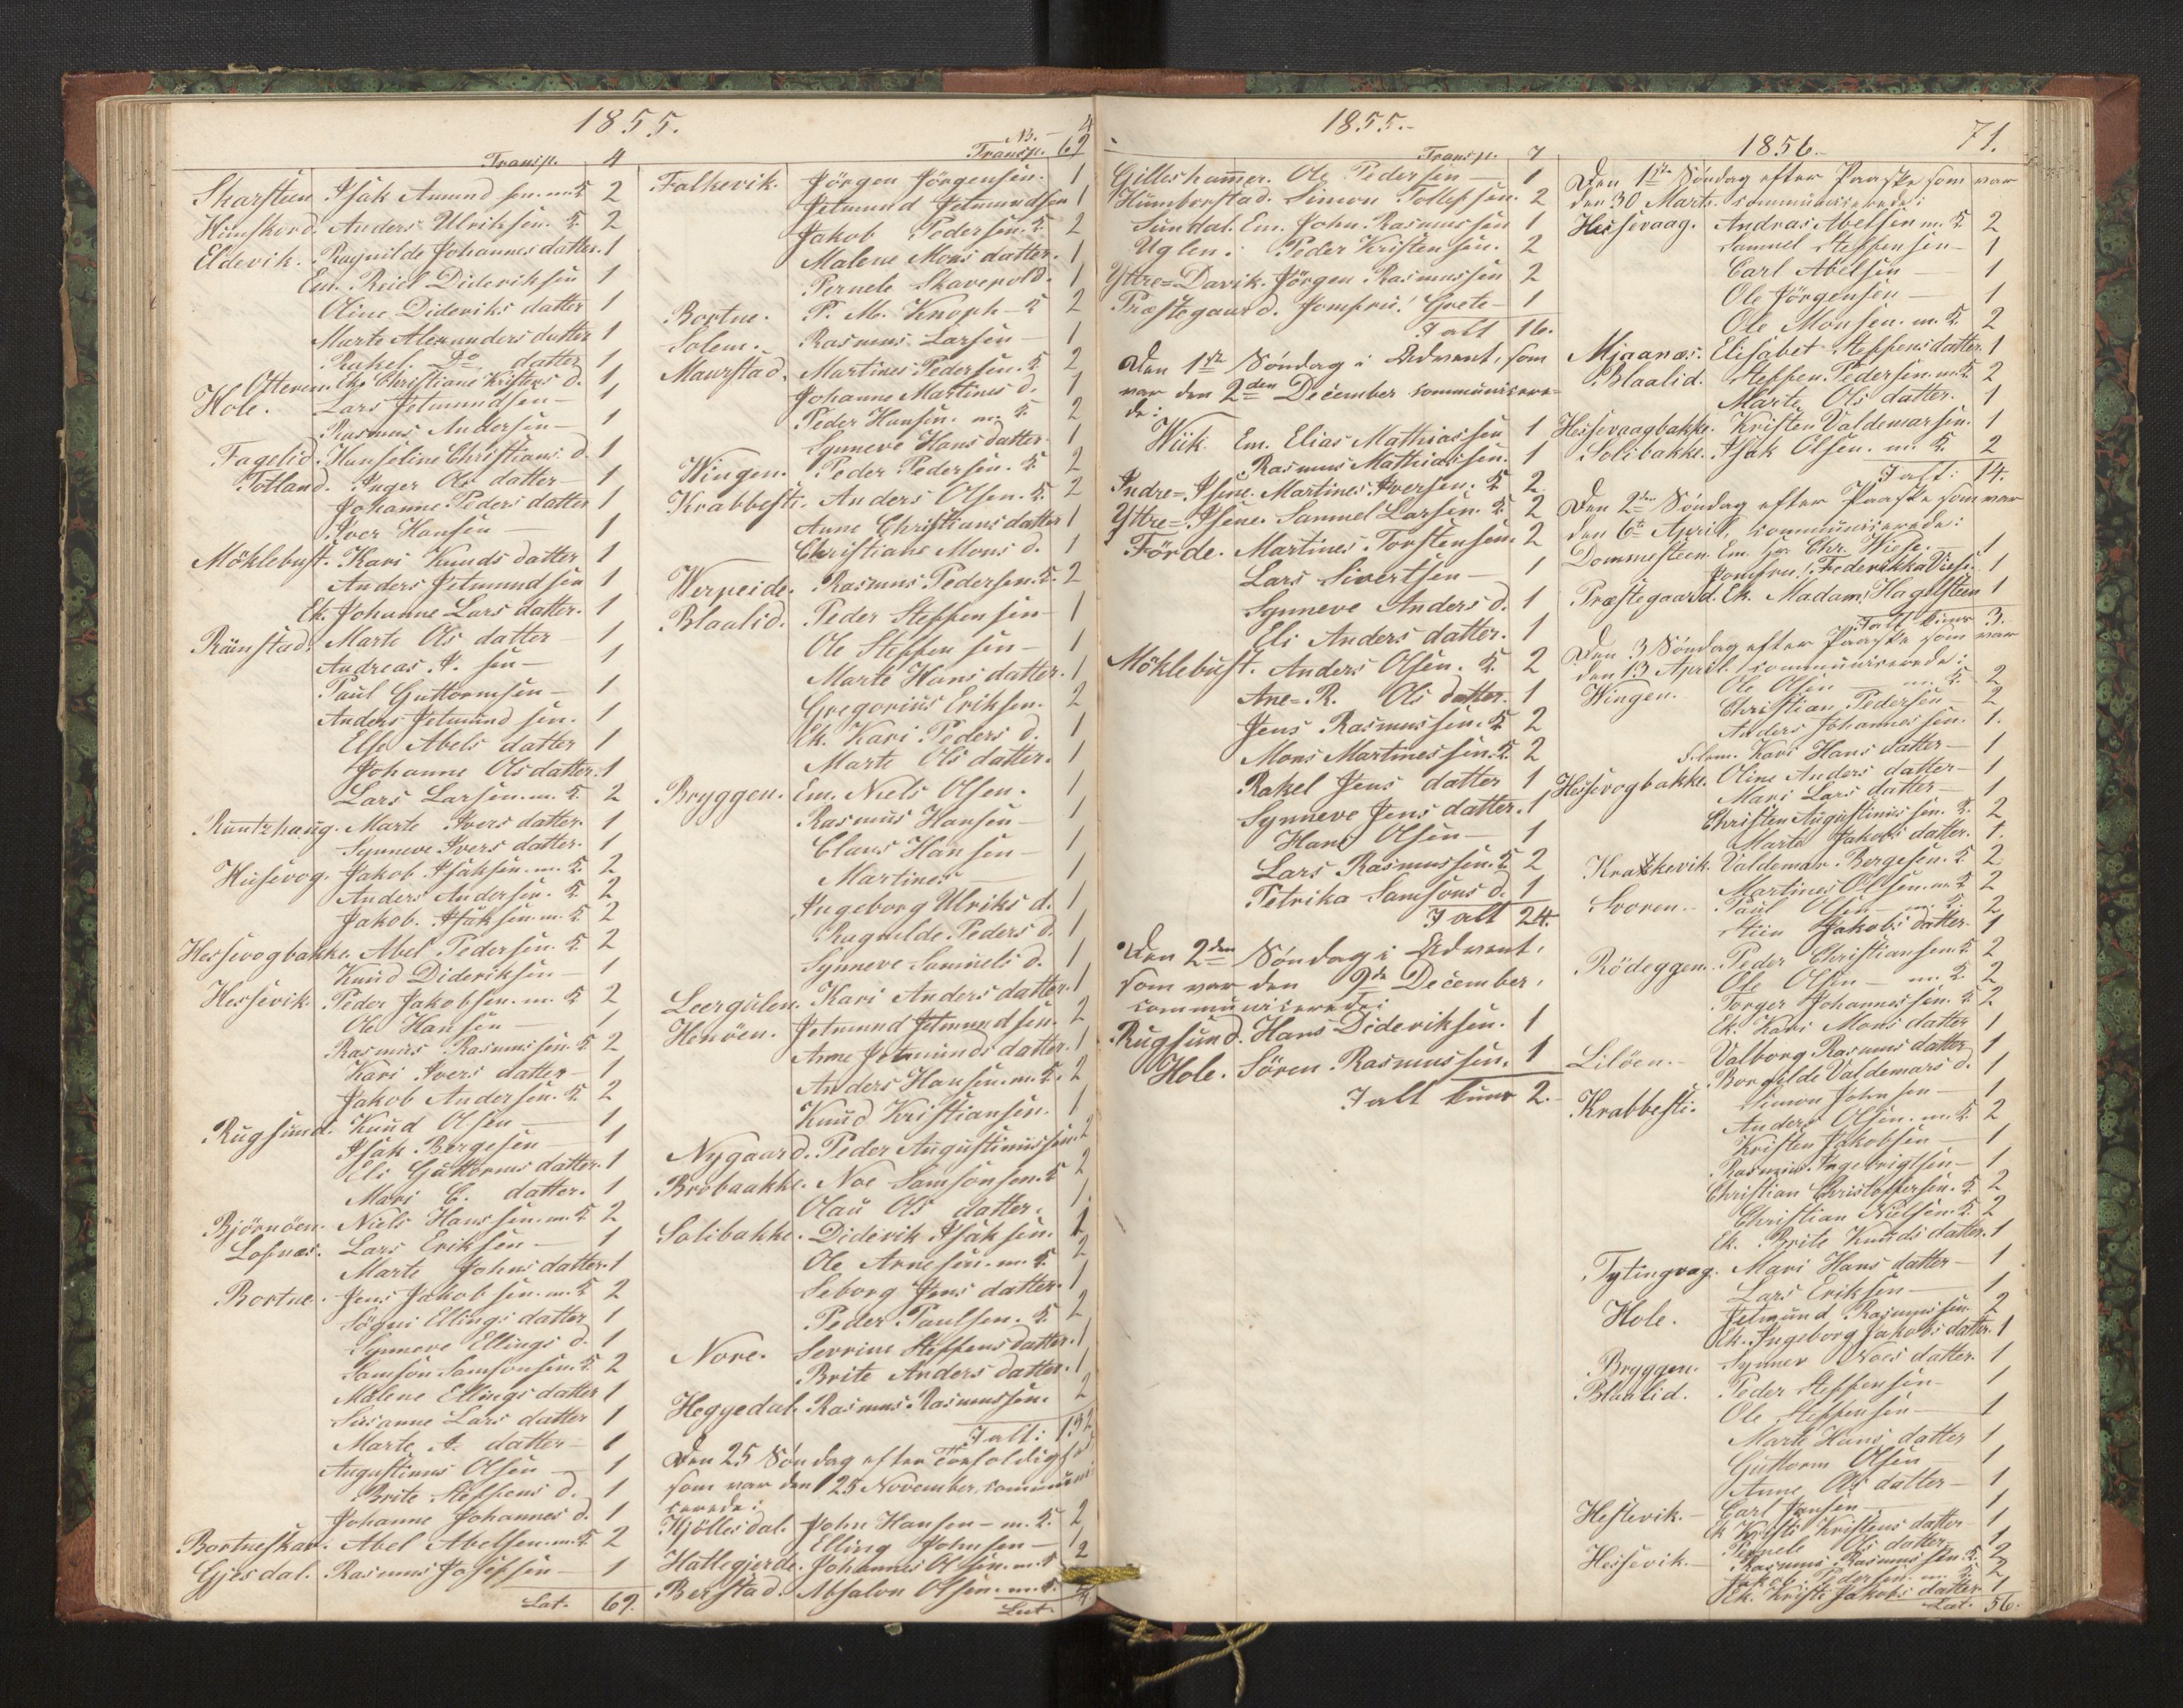 1855.
Transp. 4
Skarsteen Isak Amundsen. m. K. 2
Anders Ulriksen. K. 2
Eldevik. Ragnilde Johannes datter. 1
Em. Reiel Dideriksen 1
Oline Dideriks datter 1
Marte Alexanders datter 1
Rakel Do datter 1
Otteren. Christiane Kristens d. 1
Hole. Lars Jetmundsen 1
Rasmus Andersen 1
Fagelid. Hanseline Christians d. 1
Totland. Inger Ols datter 1
Johanne Peders datter 1
Iver Hansen 1
Möklebust. Kari Knuds datter 1
Anders Jetmundsen 1
Ek. Johanne Lars datter. 1
Marte Ols datter 1
Andreas A. sen 1
Paul Guttormsen 1
Anders Jetmundsen. 1
Else Abels datter 1
Johanne Ols datter. 1
Lars Larsen. m. K. 2
Runtzhaug. Marte Ivers datter. 1
Synneve Ivers datter. 1
Husevog. Jakob Isaksen. m. K. 2
Anders Andersen. K. 2
Jakob. Isaksen. m. K. 2
Hessevogbakke. Abel Pedersen. K. 2
Knud Dideriksen 1
Hessevik. Peder Jakobsen. m. K. 2
Ole Hansen 1
Rasmus Rasmussen. K. 2
Kari Ivers datter 1
Jakob Andersen. K. 2
Rugsund. Knud Olsen 1
Isak Bergesen 1
Eli Guttorms datter. 1
Mari C. datter. 1
Björnöen. Niels Hanssen. m. K. 2
Losnæs. Lars Eriksen 1
Marte Johns datter. 1
Bortne. Jens Jakobsen. m. K. 2
Sögni Ellings datter 1
Synneve Ellings d. 1
Samson Samsonsen. K. 2
Malene Ellings datter 1
Susanne Lars datter 1
Marte A. datter 1
Augustinus Olsen 1
Brite Steffens d. 1
Johanne Johannes d. 1
Bortneskar. Abel Abelsen. m. K. 2
Gjesdal. Rasmus Josefsen 1
Lat. 69.
No. 4
Transp. 69
Falkevik. Jörgen Jörgensen. 1
Jetmund Jetmundsen 1
Jakob Pedersen. K. 2
Malene Mons datter. 1
Pernele Skaverold. 1
Bortne. P. M. Knoph K. 2
Solem. Rasmus Larsen 1
Maurstad. Martines Pedersen. K. 2
Johanne Martinus d. 1
Peder Hansen. m. K. 2
Synneve Hans datter 1
Wingen. Peder Pedersen. K. 2
Krabbesti. Anders Olsen. K. 2
Anne Christians datter 1
Christiane Mons d. 1
Werpeide. Rasmus Pedersen. K. 2
Blaalid. Peder Steffensen 1
Ole Steffensen 1
Marte Hans datter. 1
Gregorius Eriksen. 2
Ek. Kari Peders d. 1
Marte Ols datter. 1
Bryggen. Em. Niels Olsen. 1
Rasmus Hansen 1
Claus Hansen 1
Martines 1
Ingeborg Ulriks d. 1
Ragnilde Peders d. 1
Synneve Samuels d. 1
Leergulen. Kari Anders datter. 1
Henöen. Jetmund Jetmundsen. 2
Anne Jetmunds datter. 1
Anders Hansen. m. K. 2
Knud Kristiansen. 1
Nygaard. Peder Augustinussen. 2
Brobaakke. Noe Samsonsen. K. 2
Olau Ols datter. 1.
Solibakke. Diderik Isaksen. 1
Ole Arnesen. m. K. 2
Seborg Jens datter. 1
Peder Paulsen. K. 2
Nore. Serrine Steffens datter. 1
Brite Anders datter. 1
Heggedal. Rasmus Rasmussen. 2
I alt: 132
Den 25 Söndag efter Trefoldigh
som var den 25 November, communi
cerede:
Kjöllesdal. John Hansen m. K. 2
Elling Johnsen 1
Hatlegjerde. Johannes Olsen. m. K. 2
Berstad. Absalon Olsen. m. K.
Lat.
1855.
Transp. 7
Gilleshammer. Ole Pedersen 1
Humborstad. Simon Tollefsen. 2
Sundal. Em. John Rasmussen 1
Uglen. Peder Kristensen. 2
Yttre=Davik. Jörgen Rasmussen 2
Præstegaard. Jomfru! Grete 1
I alt 16.
Den 1ste Söndag i Advent, som
var den 2den December communicere=
de:
Wiik. Em. Elias Mathiassen 1
Rasmus Mathiassen. 1
Indre=Isene. Martines Iversen. K. 2
Yttre=Isene. Samuel Larsen. K. 2
Förde. Martines Torstensen. 2
Lars Sivertsen 1
Synneve Anders d. 1
Eli Anders datter. 1
Möklebust. Anders Olsen. K. 2
Ane=R. Ols datter. 1
Jens Rasmussen. K. 2
Mons Martinessen. K. 2
Rakel Jens datter 1
Synneve Jens datter. 1
Hans Olsen 1
Lars Rasmussen. K. 2
Petrika Samsons d. 1
I alt 24.
Den 2den Söndag i Advent.
som var den 9de December,
communicerede:
Rugsund. Hans Dideriksen. 1
Hole. Sören Rasmussen. 1
I alt kuns 2.
1856. 71.
Den 1ste Söndag efter Paaske som var
den 30 Marts. communicerede:
Hessevaag. Andreas Abelsen m. K. 2
Samuel Steffensen 1
Carl Abelsen 1
Ole Jörgensen 1
Ole Monsen. m. K. 2
Mjaanæs. Elisabet Steffens datter. 1
Blaalid. Steffen Pedersen. m. K. 2
Marte Ols datter. 1
Hessevaagbakke. Kristen Valdemarsen. 1
Solibakke. Isak Olsen. m. K. 2
I alt: 14.
Den 2den Söndag efter Paaske som var
den 6te April, communicerede:
Dommesteen. Em. Hr. Chr. Wiese. 1
Jomfru! Frederikka Viese 1
Præstegaard. Ek. Madam! Hagelsteen 1
I alt kuns 3.
Den 3 Söndag efter Paaske som var
den 13 April communicerede:
Wingen. Ole Olsen m. K. 2
Christian Pedersen 2
Anders Johannessen. 1.
Kari Hans datter 1
Hessevogbakke. Oline Anders datter 1
Mari Lars datter 1
Christen Augustinussen. K. 2
Marte Jakobs datter. 1.
Krakkevik. Valdemar Bergesen. K. 2
Martines Olsen. m. K. 2
Svoren. Paul Olsen m. K. 2
Stein Jakobs datter. 1
Rödeggen. Peder Christiansen. K. 2
Ole Olsen m. K. 2
Torger Johannessen. K. 2
Ek. Kari Mons datter 1
Lilöen. Valborg Rasmus datter 1
Borgilde Valdemars d. 1
Krabbesti. Simon Johnsen 1
Anders Olsen. m. K. 2
Kristen Jakobsen 1
Rasmus Ingebrigtsen 1
Christian Christoffersen. K. 2
Christian Nielsen. K. 2
Ek. Brite Knuds datter. 1
Tytingvag. Mari Hans datter 1
Lars Eriksen 1
Hole. Jetmund Rasmussen. 2
Ek. Ingeborg Jakobs datter. 1
Bryggen. Synnev Noes datter. 1
Blaalid. Peder Steffensen 1
Ole Steffensen 1
Marte Hans datter 1
Guttorm Olsen 1
Anne Ols datter 1
Hestevik. Carl Jansen 1
Ek Kristi Kristens datter 1
Pernele Ols datter 1
Hessevik. Rasmus Rasmussen. K. 2
Jakob Pedersen. m. K. 2
Ek. Kristi Jakobs datter. 1
Lat. 56.